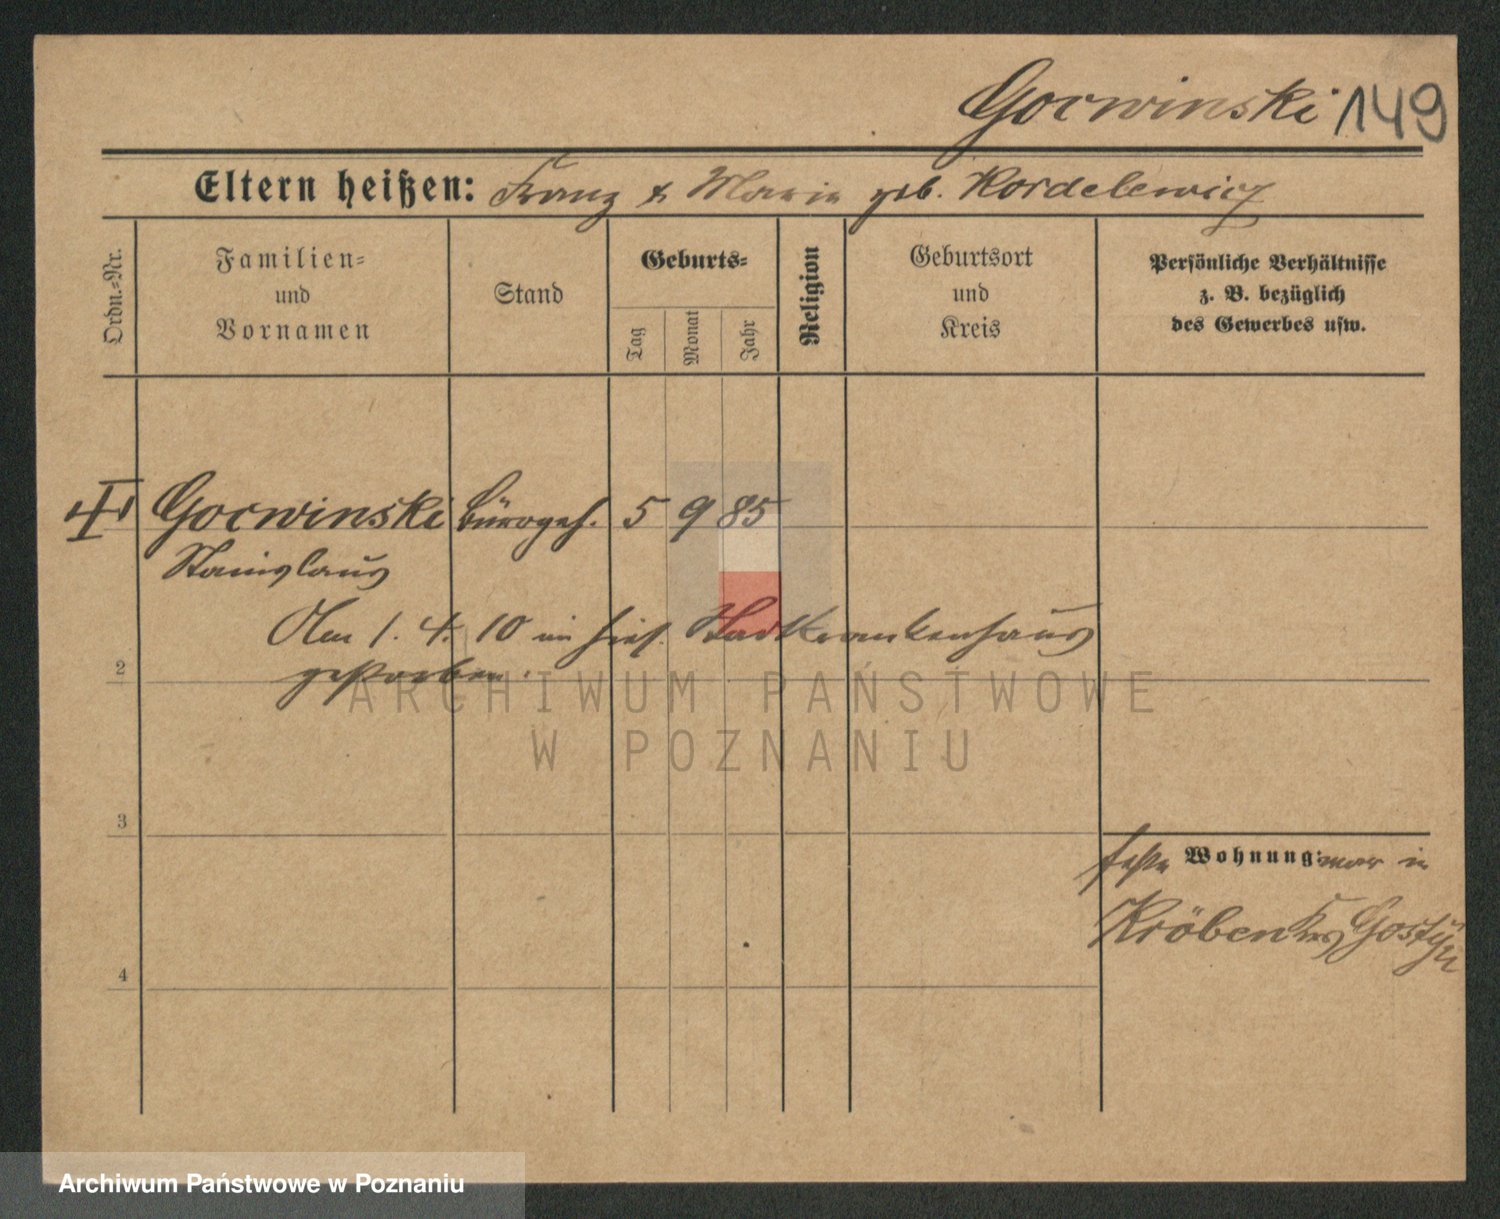 Gocwinski 149
Eltern heißen: Franz & Marie geb. Kordelewicz
Ordn.-Nr.
Familien-
und
Vornamen
Stand
Geburts-
Tag
Monat
Jahr
Religion
Geburtsort
und
Kreis
Persönliche Verhältnisse
z. B. bezüglich
des Gewerbes usw.
Gocwinski Bürogeh. 5 9 85
Stanislaus
Am 1. 4. 10 im hies. Stadtkrankenhaus
2
gestorben.
ARCHIWUM PAŃSTWOWE
W POZNANIU
3
feste Wohnung war in
Kröben Krs Gostyn
4
Archiwum Państwowe w Poznaniu